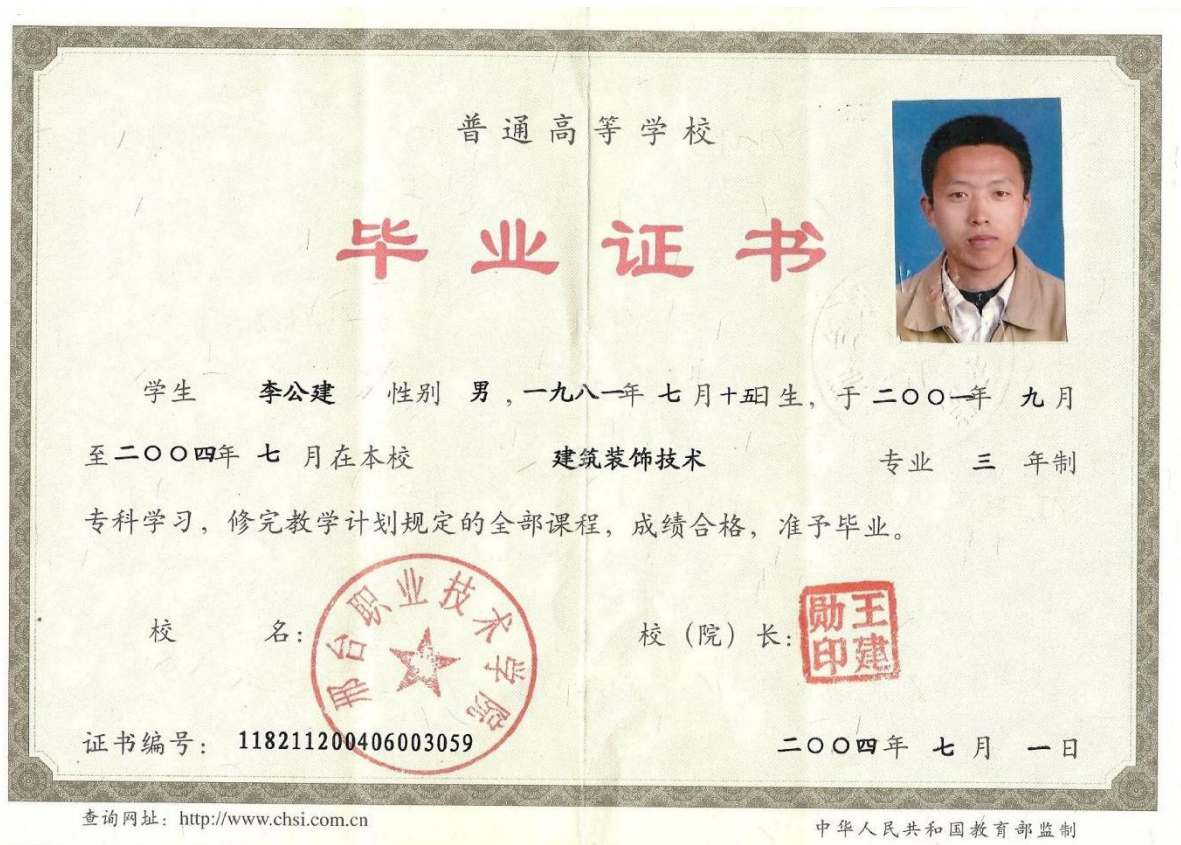 普通高等学校
毕业证书
学生 李公建 性别 男，一九八一年 七月十五日生，于二〇〇一年 九月
至二〇〇四年 七 月在本校 建筑装饰技术 专业 三 年制
专科学习，修完教学计划规定的全部课程，成绩合格，准予毕业。
校 名：
邢台职业技术学院
校（院）长：
王建勋印
证书编号： 118211200406003059
二〇〇四年 七月 一日
查询网址：http://www.chsi.com.cn
中华人民共和国教育部监制